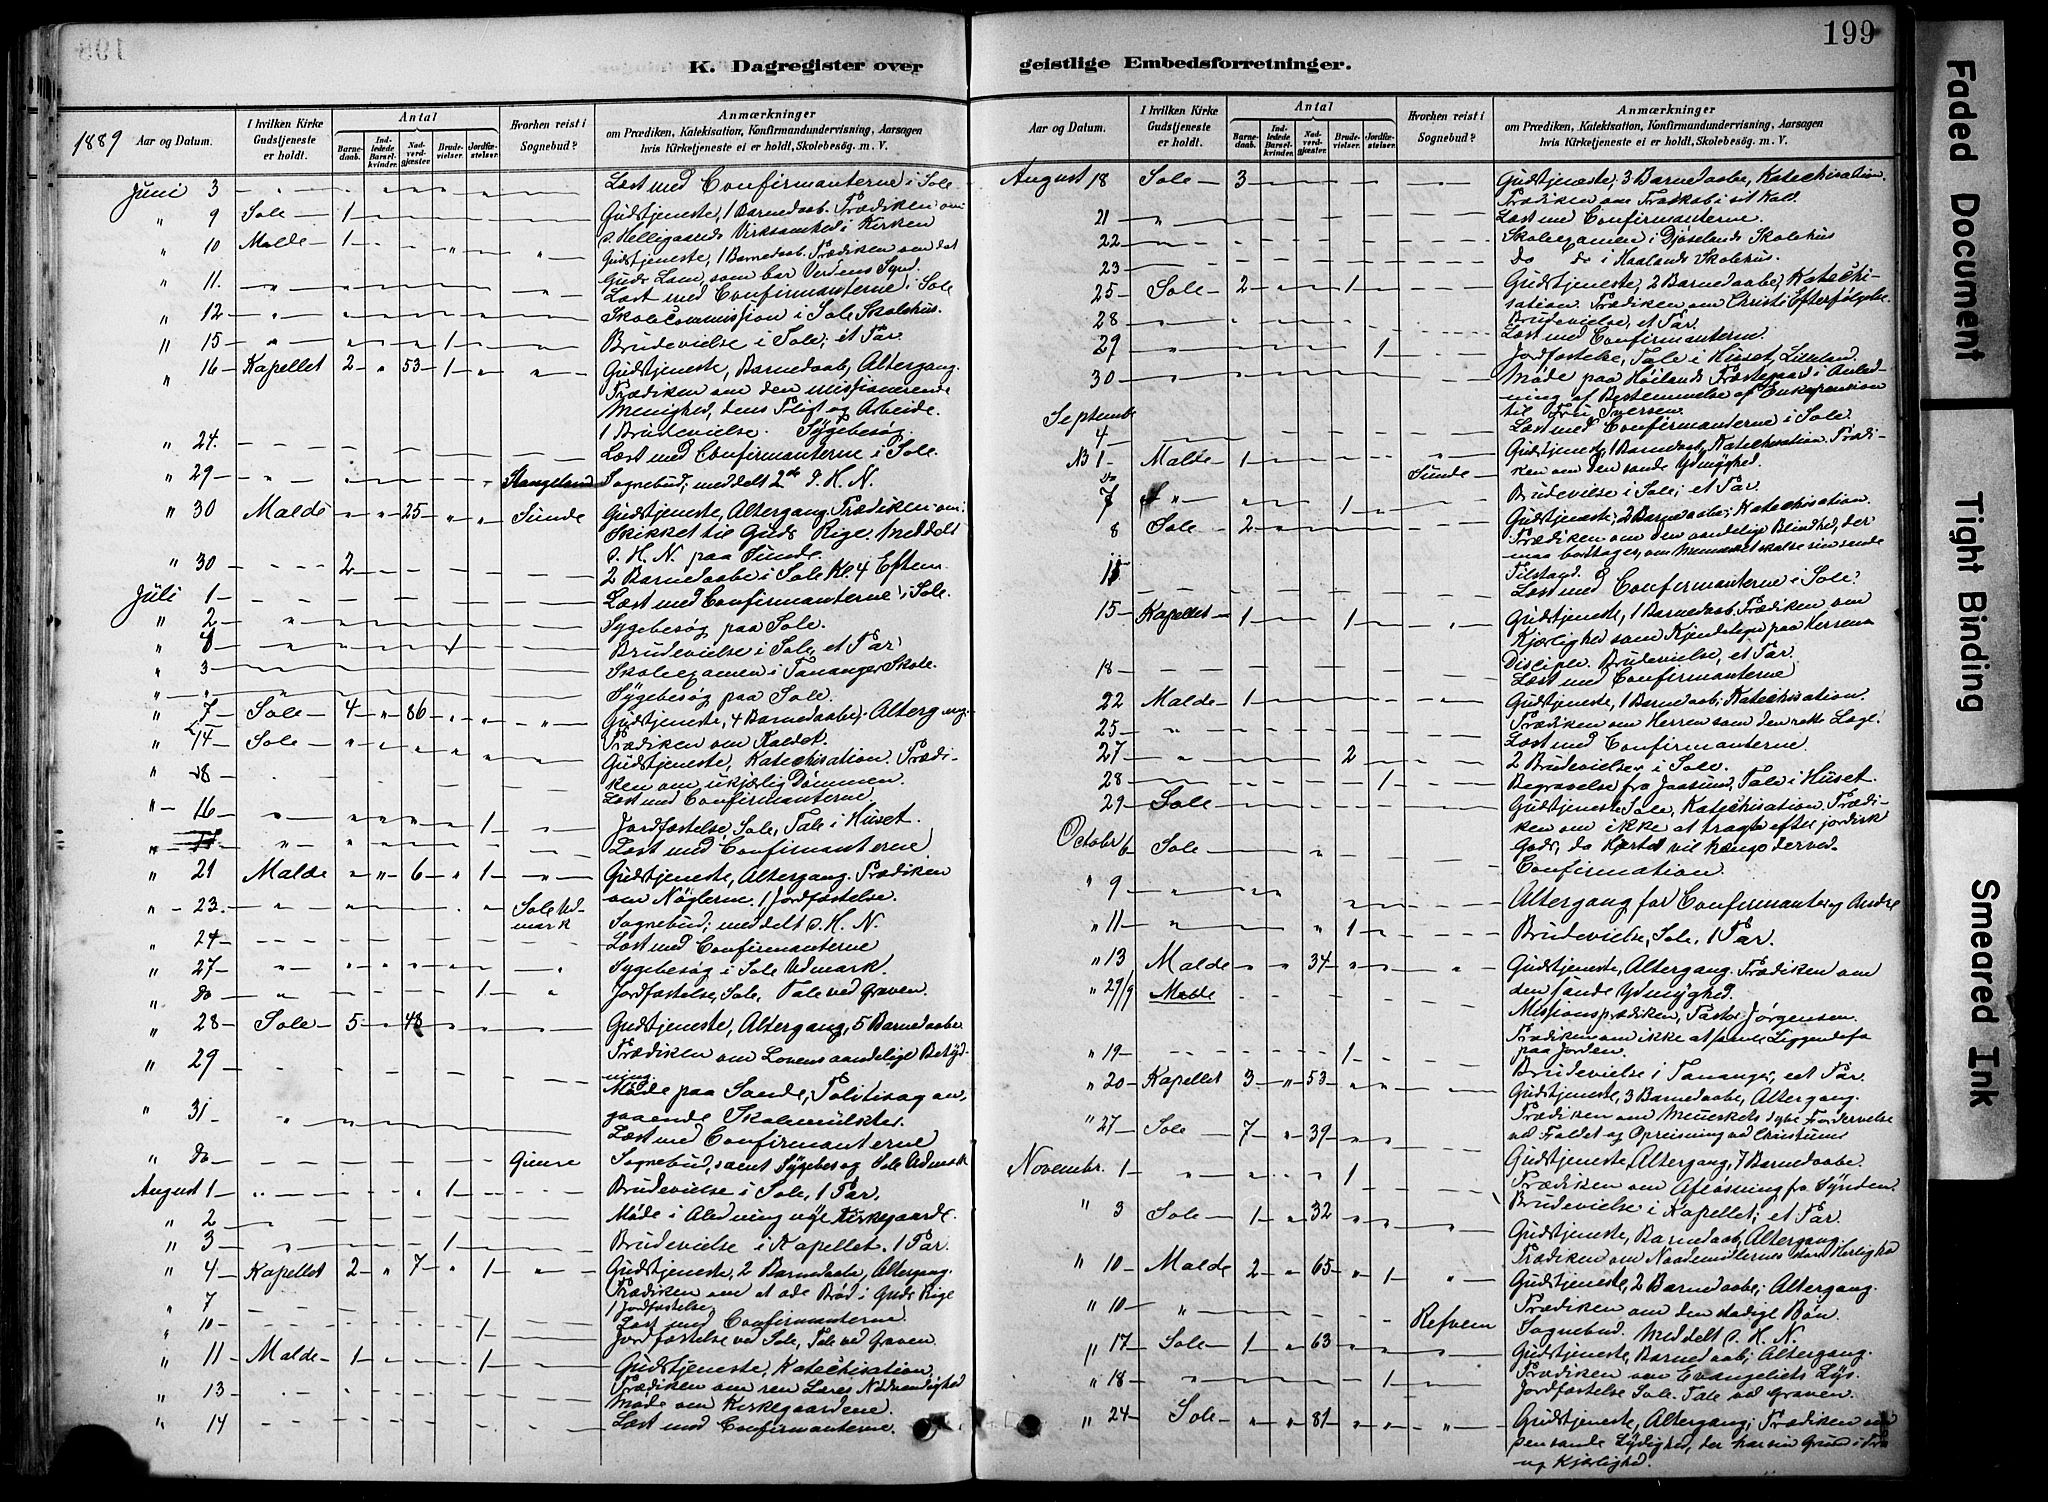 199
K. Dagregister over geistlige Embedsforretninger.
1889
Aar og Datum. I hvilken Kirke Gudstjeneste er holdt. Antal Barnedaab. Indledede Barselkvinder. Nadverdgjæster Brudevielser. Jordfæstelser. Hvorhen reist i Sognebud? Anmærkninger om Prædiken, Katekisation, Konfirmandundervisning, Aarsagen hvis Kirketjeneste ei er holdt, Skolebesøg. m. V.
Juni 3 Læst med Confirmanterne i Sole
" 9 Sole 1 Gudstjeneste, 1 Barnedaab. Prædiken om
d. Helligaands Virksomhed i Kirken
" 10 Malde 1 Gudstjeneste, 1 Barnedaab. Prædiken om det
Guds Lam, som bar Verdens Synd.
" 11. Læst med Confirmanterne i Sole
" 12 Skolecommission i Sole Skolehus.
" 15 1 Brudevielse i Sole, et Par.
" 16 Kapellet 2 " 53 1 Gudstjeneste, Barnedaab, Altergang.
Prædiken om den missionerende
Menighed, dens Pligt og Arbeide.
1 Brudevielse. Sygebesøg.
" 24. Læst med Confirmanterne i Sole.
" 29 Stangeland Sognebud, meddelt 2de d. H. N.
" 30 Malde " " 25 " " Sunde Gudstjeneste, Altergang. Prædiken om:
Skikket til Guds Rige. Meddelt
d. H. N. paa Sunde.
" 30 2 2 Barnedaabe i Sole Kl. 4 Efterm.
Juli 1 Læst med Confirmanterne i Sole.
" 2 Sygebesøg paa Sole.
" 4 1 Brudevielse i Sole, et Par
" 3 Skoleexamen i Tananger Skole.
" " Sygebesøg paa Sole.
" 7 Sole 4 " 86 Gudstjeneste, 4 Barnedaabe, Altergang.
Prædiken om Kaldet.
" 14 Sole Gudstjeneste, Katechisation. Prædi-
ken om ukjærlig Dømmen.
" 8 Læst med Confirmanterne
" 16 1 Jordfæstelse, Sole, Tale i Huset.
Læst med Confirmanterne
" 21 Malde " " 6 " 1 Gudstjeneste, Altergang. Prædiken
om Nøglerne. 1 Jordfæstelse.
" 23. Sole Ud-
mark Sognebud, meddelt d. H. N.
" 24 Læst med Confirmanterne
" 27 Sygebesøg i Sole Udmark.
" do 1 Jordfæstelse, Sole, Tale ved Graven.
" 28 Sole 5 " 48 Gudstjeneste, Altergang, 5 Barnedaabe.
Prædiken om Lovens aandelige Betyd-
ning.
" 29 Møde paa Sande, Politisag an-
gaaende Skolemulkter.
" 31 Læst med Confirmanterne
" do Sognebud, samt Sygebesøg Sole Udmark
August 1 1 Brudevielse i Sole, 1 Par.
" 2 Møde i Aledning nye Kirkegaarde.
" 3 1 Brudevielse i Kapellet. 1 Par.
" 4 Kapellet 2 " 7 " 1 Gudstjeneste, 2 Barnedaabe, Altergang.
Prædiken om at æde Brød i Guds Rige
1 Jordfæstelse
" 7 Læst med Confirmanterne
" 10 1 Jordfæstelse ved Sole, Tale ved Graven.
" 11 Malde 1 1 Gudstjeneste, Katechisation,
Prædiken om ren Læres Nødvendighed
" 13 Møde om Kirkegaardene.
" 14 Læst med Confirmanterne.
Aar og Datum. I hvilken Kirke Gudstjeneste er holdt. Antal Barnedaab. Indledede Barselkvinder. Nadverdgjæster Brudevielser. Jordfæstelser. Hvorhen reist i Sognebud? Anmærkninger om Prædiken, Katekisation, Konfirmandundervisning, Aarsagen hvis Kirketjeneste ei er holdt, Skolebesøg. m. V.
August 18 Sole 3 Gudstjeneste, 3 Barnedaabe, Katechisation.
Prædiken om Troskab i sit Kald.
21 Læst med Confirmanterne.
22 Skoleexamen i Djøselands Skolehus
23 do do i Haalands Skolehus.
25 Sole 2 " " 1 Gudstjeneste, 2 Barnedaabe, Katechi-
sation. Prædiken om Christi Efterfølgelse.
Brudevielse, et Par.
28 Læst med Confirmanterne.
29 1 Jordfæstelse, Tale i Huset,
30 Møde paa Høilands Præstegaard i Anled-
ning af Bestemmelse af Enkepension
til Fru Iversen.
Septembr 4 Læst med Confirmanterne i Sole.
NB 1 Malde 1 Sunde Gudstjeneste, 1 Barnedaab, Katechisation. Prædi-
ken om den sande Ydmyghed.
7 1 Brudevielse i Sole, et Par.
8 Sole 2 Gudstjeneste, 2 Barnedaabe, Katechisation.
Prædiken om den aandelige Blindhed, der
maa borttages, om Mennesket skal se sin sande
Tilstand.
11 Læst med Confirmanterne i Sole.
15 Kapellet 1 1 Gudstjeneste, 1 Barnedaab, Prædiken om
Kjærlighed som Kjendetegn paa Herrens
Disciple. Brudevielse, et Par.
18 Læst med Confirmanterne
22 Malde 1 Gudstjeneste, 1 Barnedaab, Katechisation.
Prædiken om Herren som den rette Læge.
25 Læst med Confirmanterne
27 2 2 Brudevielser i Sole.
28 1 Begravelse fra Jaasund, Tale i Huset.
29 Sole Gudstjeneste Sole, Katechisation. Prædi-
ken om ikke at tragte efter jordisk
Gods, da Hjertet vil hænge derved.
Octobr 6 Sole Confirmation.
" 9 Altergang for Confirmanter og Andre
" 11 1 Brudevielse, Sole, 1 Par.
" 13 Malde " " 34 Gudstjeneste, Altergang. Prædiken om
den sande Ydmyghed.
" 29/9 Malde Missionsprædiken, Pastor Jørgensen.
Prædiken om ikke at samle Liggendefæ
paa Jorden.
" 19 1 Brudevielse i Tananger, eet Par.
" 20 Kapellet 3 " 53 Gudstjeneste, 3 Barnedaabe, Altergang.
Prædiken om Menneskets dybe Fordervelse
ved Faldet og Opreisning ved Christum
" 27 Sole 7 " 39 Gudstjeneste, Altergang, 7 Barnedaabe.
Prædiken om Afløsning fra Synden.
Novembr. 1 1 Brudevielse i Kapellet, et Par.
" 3 Sole 1 " 32 Gudstjeneste, Barnedaab, Altergang.
Prædiken om Naademidlernes store Herlighed
" 10 Malde 2 " 65 " 1 Gudstjeneste, 2 Barnedaabe, Altergang.
Prædiken om den stadige Bøn.
" 10 Refveim Sognebud. Meddelt d. H. N.
" 17 Sole 1 " 63 Gudstjeneste, Barnedaab, Altergang.
Prædiken om Evangeliets Lys.
" 18 1 Jordfæstelse Sole. Tale ved Graven.
" 24 Sole " " 81 Gudstjeneste, Altergang; Prædiken om
den sande Lydighed, der har sin Grund i Tro
og Kjærlighed.
Faded Document
Tight Binding
Smeared Ink